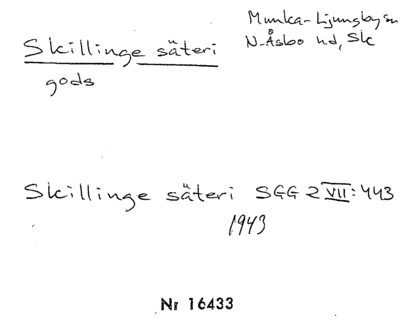 Skillinge säteri
gods
Munka-Ljungby sn
N. Åsbo hd, Sk
Skillinge säteri SGG 2 VII:443
1943
Nr 16433